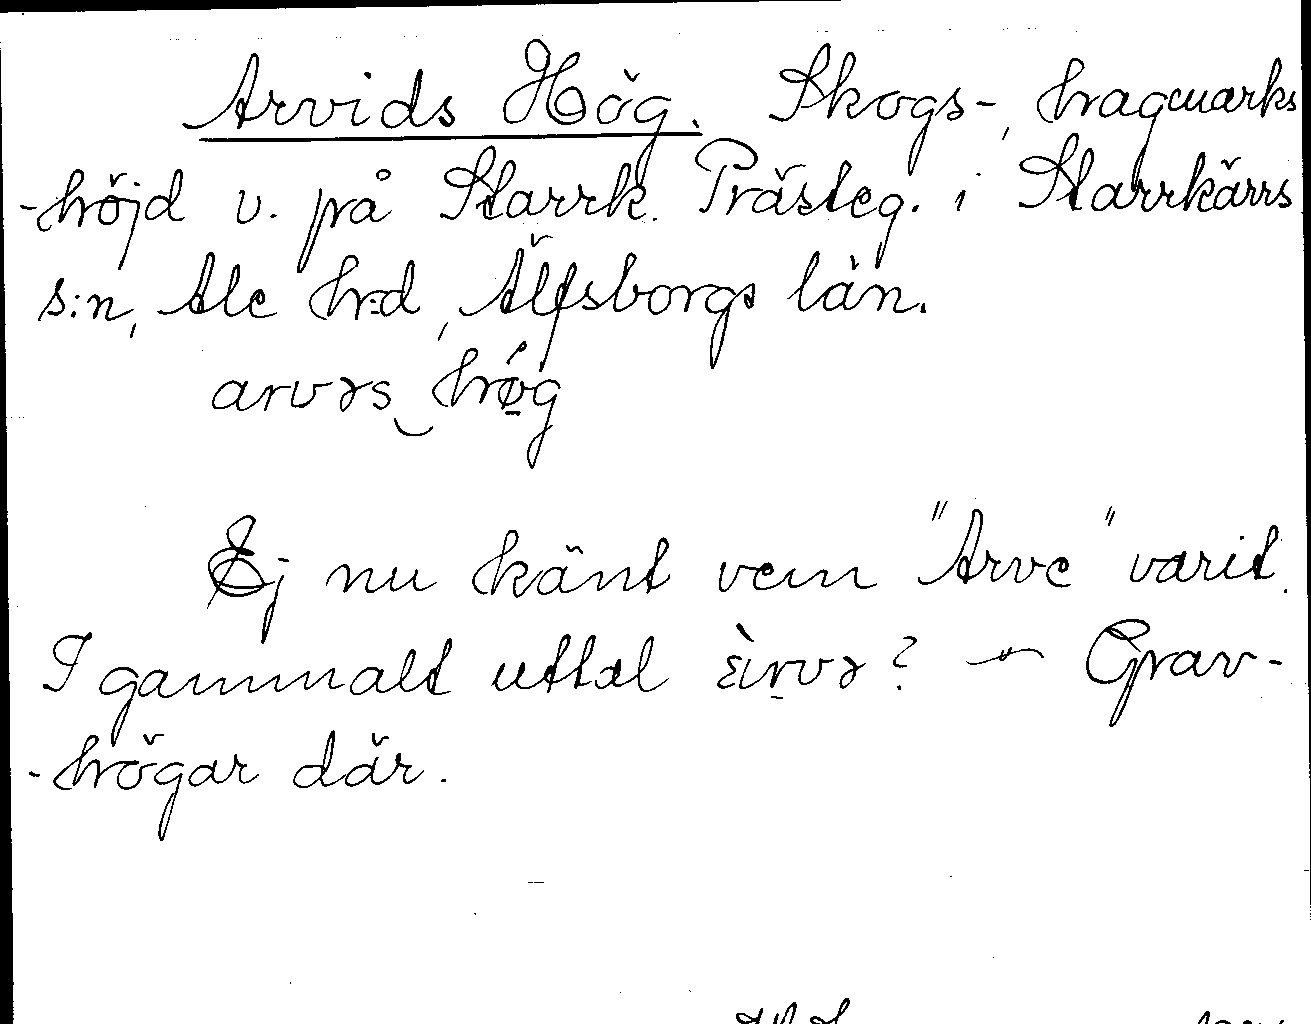 Arvids Hög. Skogs-, hagmarks
-höjd v. på Starrk. Prästeg. i Starrkärrs
s:n, Ale hrd, Älfsborgs län.
arvəs‿hǿg
Ej nu känt vem "Arve" varit.
I gammalt uttal ? — Grav-
-högar där.